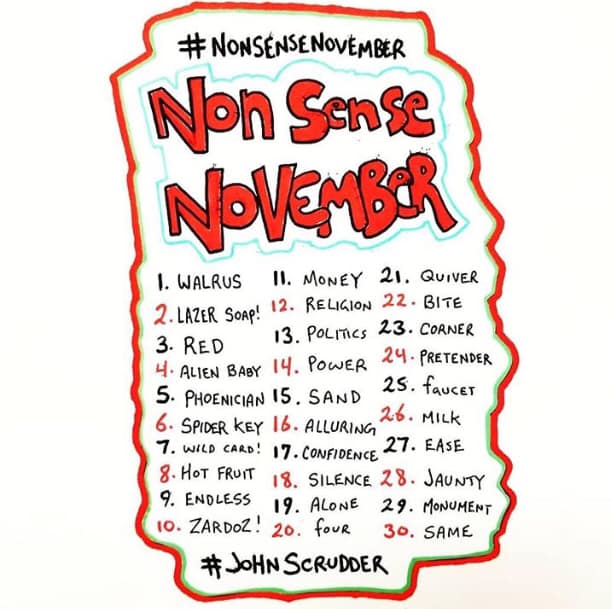 #NONSENSENOVEMBER
Non Sense
NOVEMBER
1. WALRUS
2. LAZER SOAP!
3. RED
4. ALIEN BABY
5. PHOENICIAN
6. SPIDER KEY
7. WILD CARD!
8. HOT FRUIT
9. ENDLESS
10. ZARDOZ!
11. MONEY
12. RELIGION
13. POLITICS
14. POWER
15. SAND
16. ALLURING
17. CONFIDENCE
18. SILENCE
19. ALONE
20. four
21. QUIVER
22. BITE
23. CORNER
24. PRETENDER
25. fAUCET
26. MILK
27. EASE
28. JAUNTY
29. MONUMENT
30. SAME
#JOHNSCRUDDER